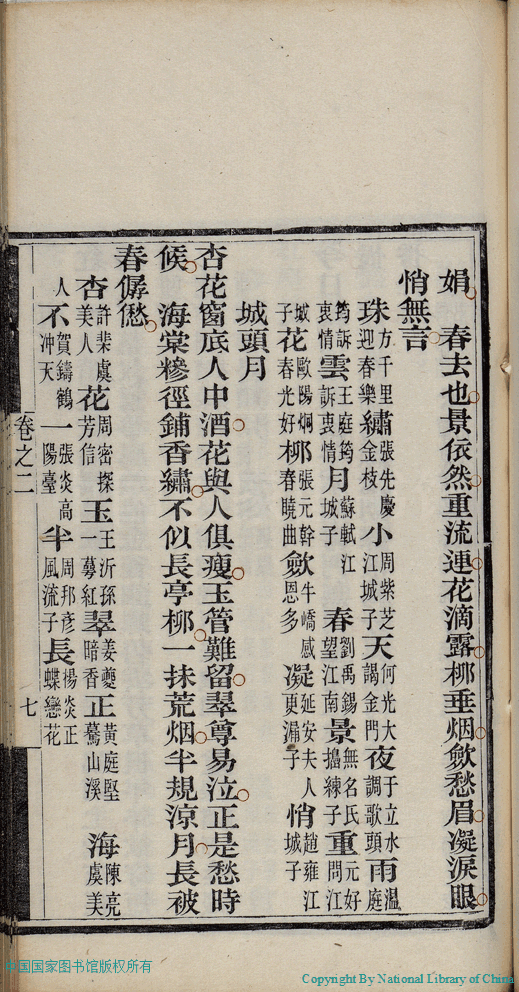 娟　春去也景依然重流連花滴露柳垂烟斂愁眉凝淚眼
悄無言
珠方千里迎春樂繡張先慶金枝小周紫芝江城子天何光大謁金門夜于立水調歌頭雨溫庭
筠訴衷情雲王庭筠訴衷情月蘇軾江城子　春劉禹錫望江南景無名氏搗練子重元好問江
城子花歐陽炯春光好柳張元幹春曉曲斂牛嶠感恩多凝延安夫人更漏子悄趙雍江城子
城頭月
杏花窗底人中酒花與人俱瘦玉管難留翠尊易泣正是愁時
候　海棠糝徑鋪香繡不似長亭柳一抹荒烟半規涼月長被
春僝僽
杏許棐虞美人花周密探芳信玉王沂孫一萼紅翠姜夔暗香正黃庭堅驀山溪　海陳亮虞美
人不賀鑄鶴冲天一張炎高陽臺半周邦彥風流子長楊炎正蝶戀花
卷之二
七
中国国家图书馆版权所有
Copyright By National Library of China